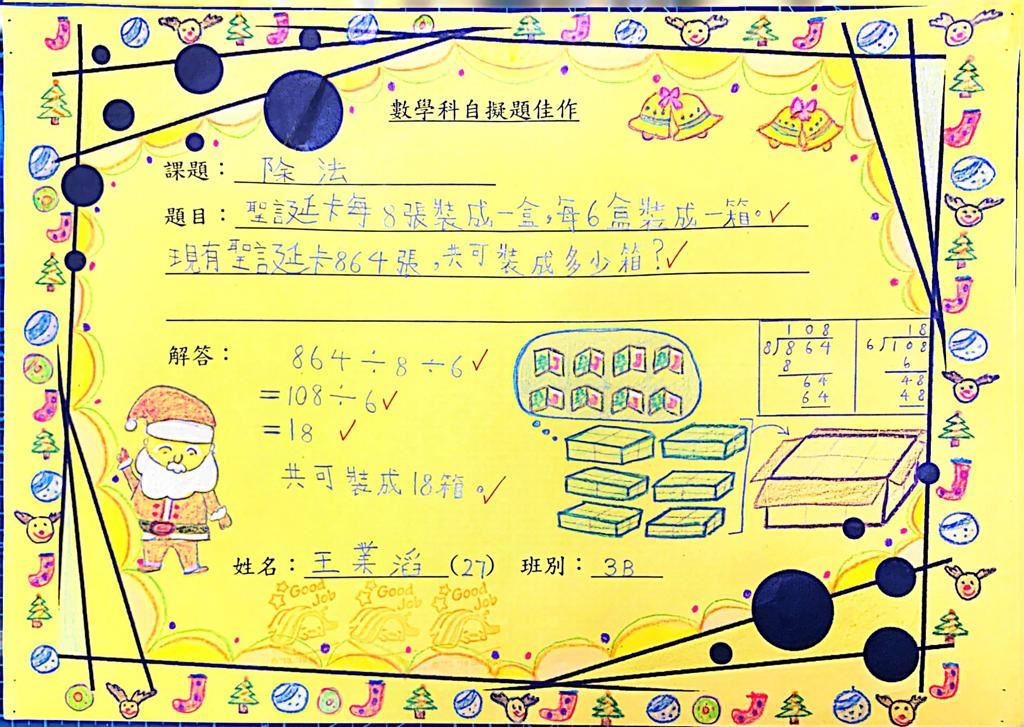 數學科自擬題佳作
課題：除法
題目：聖誕卡每8張裝成一盒，每6盒裝成一箱。
現有聖誕卡864張，共可裝成多少箱？
解答： 864÷8÷6
=108÷6
=18
共可裝成18箱。
108
8)864
8
64
64
18
6)108
6
48
48
姓名：王業滔 (27) 班別：3B
Good Job Good Job Good Job